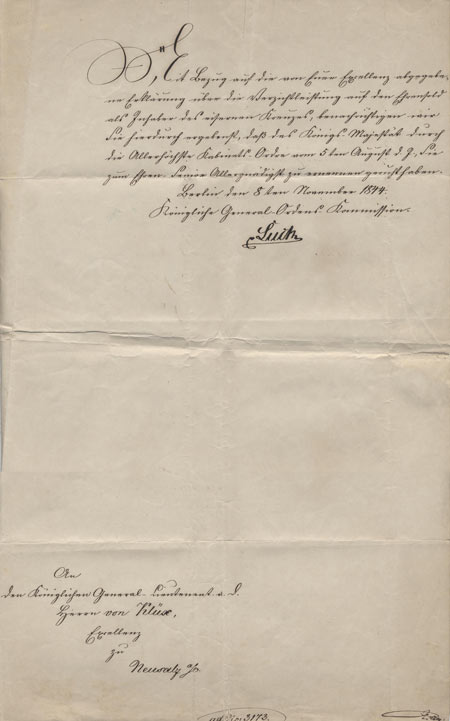 Mit Bezug auf die von Euer Exzellenz abgegebe-
ne Erklärung über die Verzichtleistung auf den Ehrensold
als Inhaber des eisernen Kreuzes, benachrichtigen wir
Sie hierdurch ergebenst, daß des Königs Majestät durch
die Allerhöchste Kabinets-Ordre vom 5ten August d. J. Sie
zum Ehren-Senior Allergnädigst zu ernennen geruht haben.
Berlin den 8ten November 1844.
Königliche General-Ordens-Kommission.
An
den Königlichen General-Lieutenant a. D.
Herrn von Klüx,
Exzellenz
zu
Neusalz a/o.
3173.